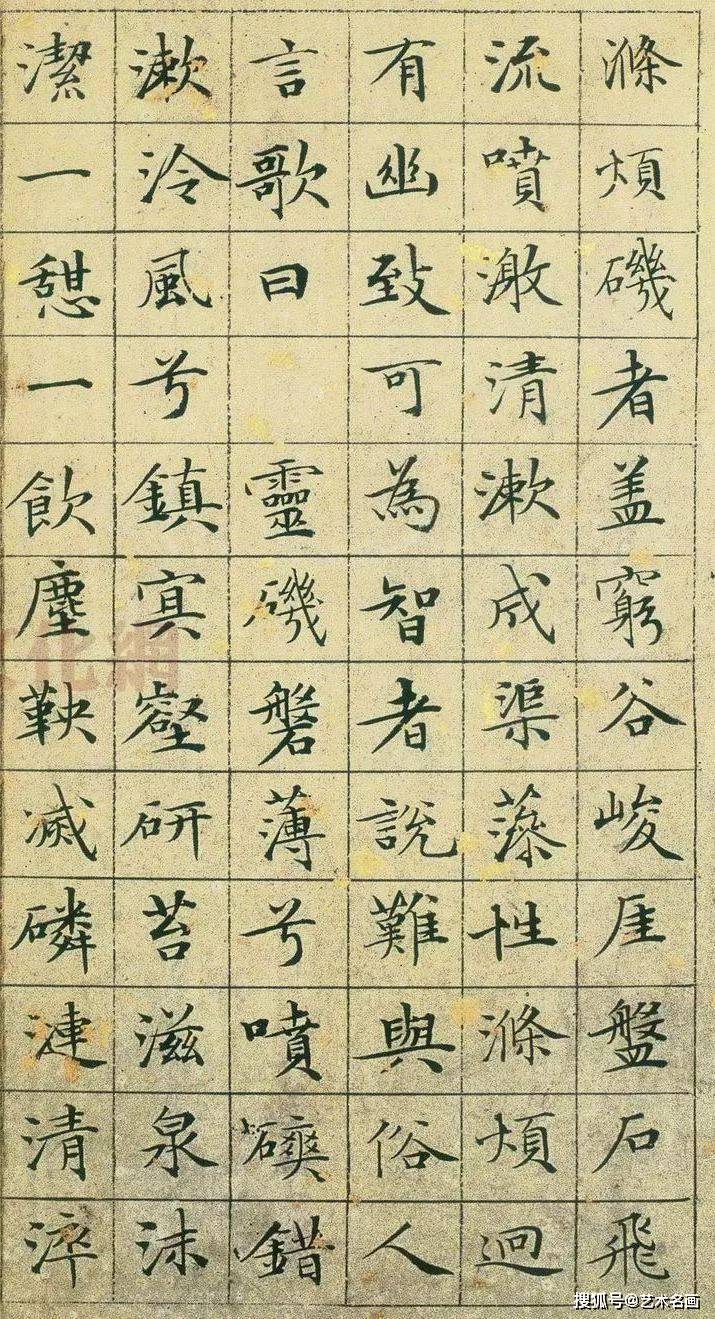 滌煩磯者盖窮谷峻厓盤石飛
流噴激清漱成渠藻性滌煩迥
有幽致可為智者說難與俗人
言歌曰 靈磯磐薄兮噴磢錯
漱泠風兮鎮冥壑研苔滋泉沫
潔一憩一飲塵鞅滅磷漣清淬
化網
搜狐号@艺术名画